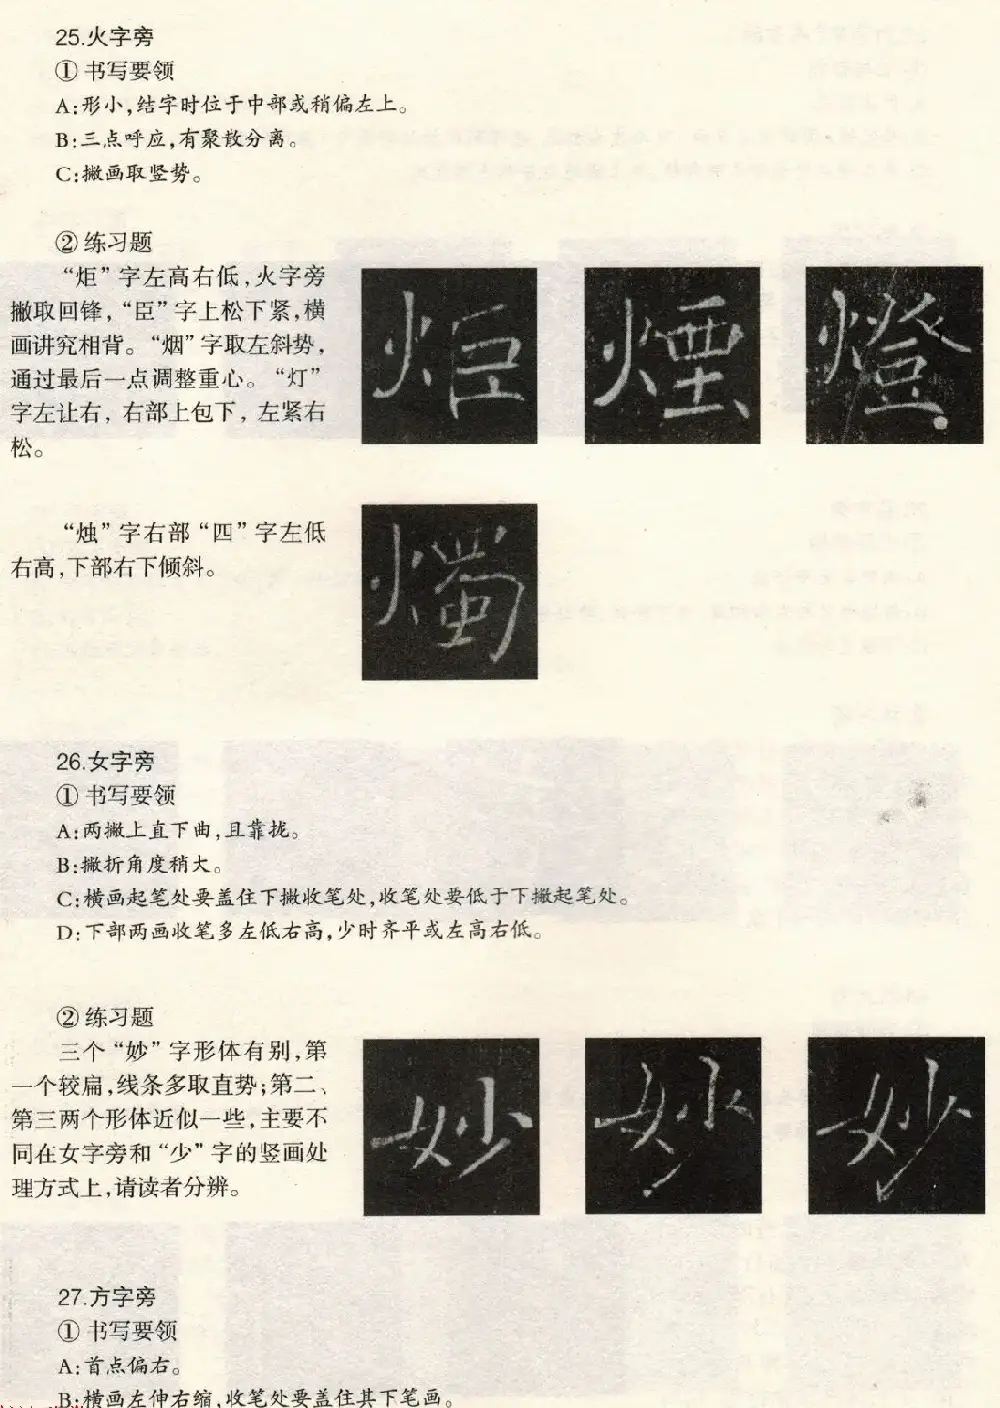 25.火字旁
① 书写要领
A:形小,结字时位于中部或稍偏左上。
B:三点呼应,有聚散分离。
C:撇画取竖势。
② 练习题
“炬”字左高右低,火字旁
撇取回锋,“臣”字上松下紧,横
画讲究相背。“烟”字取左斜势,
通过最后一点调整重心。“灯”
字左让右,右部上包下,左紧右
松。
炬 煙 燈
“烛”字右部“四”字左低
右高,下部右下倾斜。
燭
26.女字旁
① 书写要领
A:两撇上直下曲,且靠拢。
B:撇折角度稍大。
C:横画起笔处要盖住下撇收笔处,收笔处要低于下撇起笔处。
D:下部两画收笔多左低右高,少时齐平或左高右低。
② 练习题
三个“妙”字形体有别,第
一个较扁,线条多取直势;第二、
第三两个形体近似一些,主要不
同在女字旁和“少”字的竖画处
理方式上,请读者分辨。
妙 妙 妙
27.方字旁
① 书写要领
A:首点偏右。
B:横画左伸右缩,收笔处要盖住其下笔画。